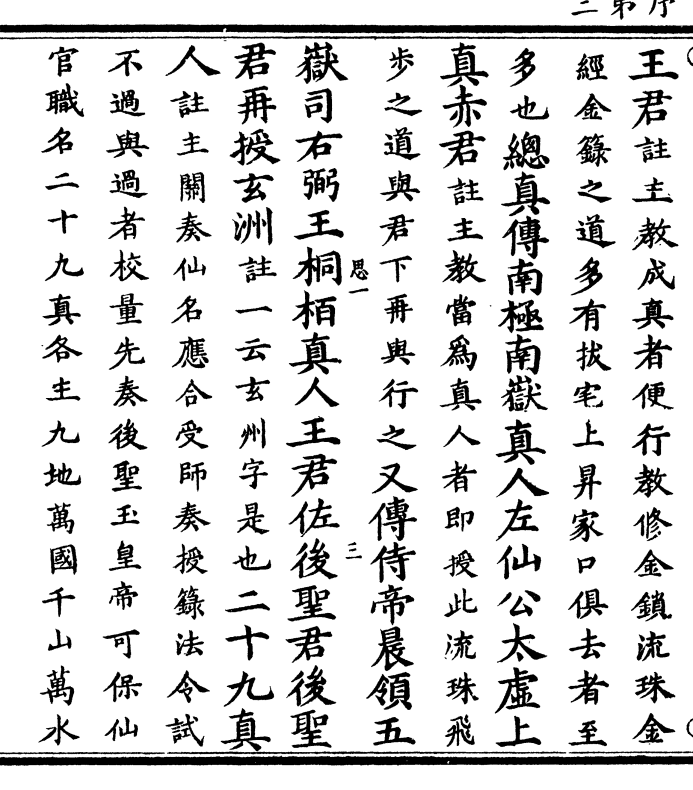 序第二
王君註主教成真者便行教修金鎖流珠金
經金籙之道多有拔宅上昇家口俱去者至
多也總真傳南極南嶽真人左仙公太虛上
真赤君註主教當爲真人者即授此流珠飛
步之道與君下再與行之又傳侍帝晨領五
思一
嶽司右弼王桐栢真人王君佐後聖君後聖
三
君再授玄洲註一云玄州字是也二十九真
人註主關奏仙名應合受師奏授籙法令試
不過與過者校量先奏後聖玉皇帝可保仙
官職名二十九真各主九地萬國千山萬水